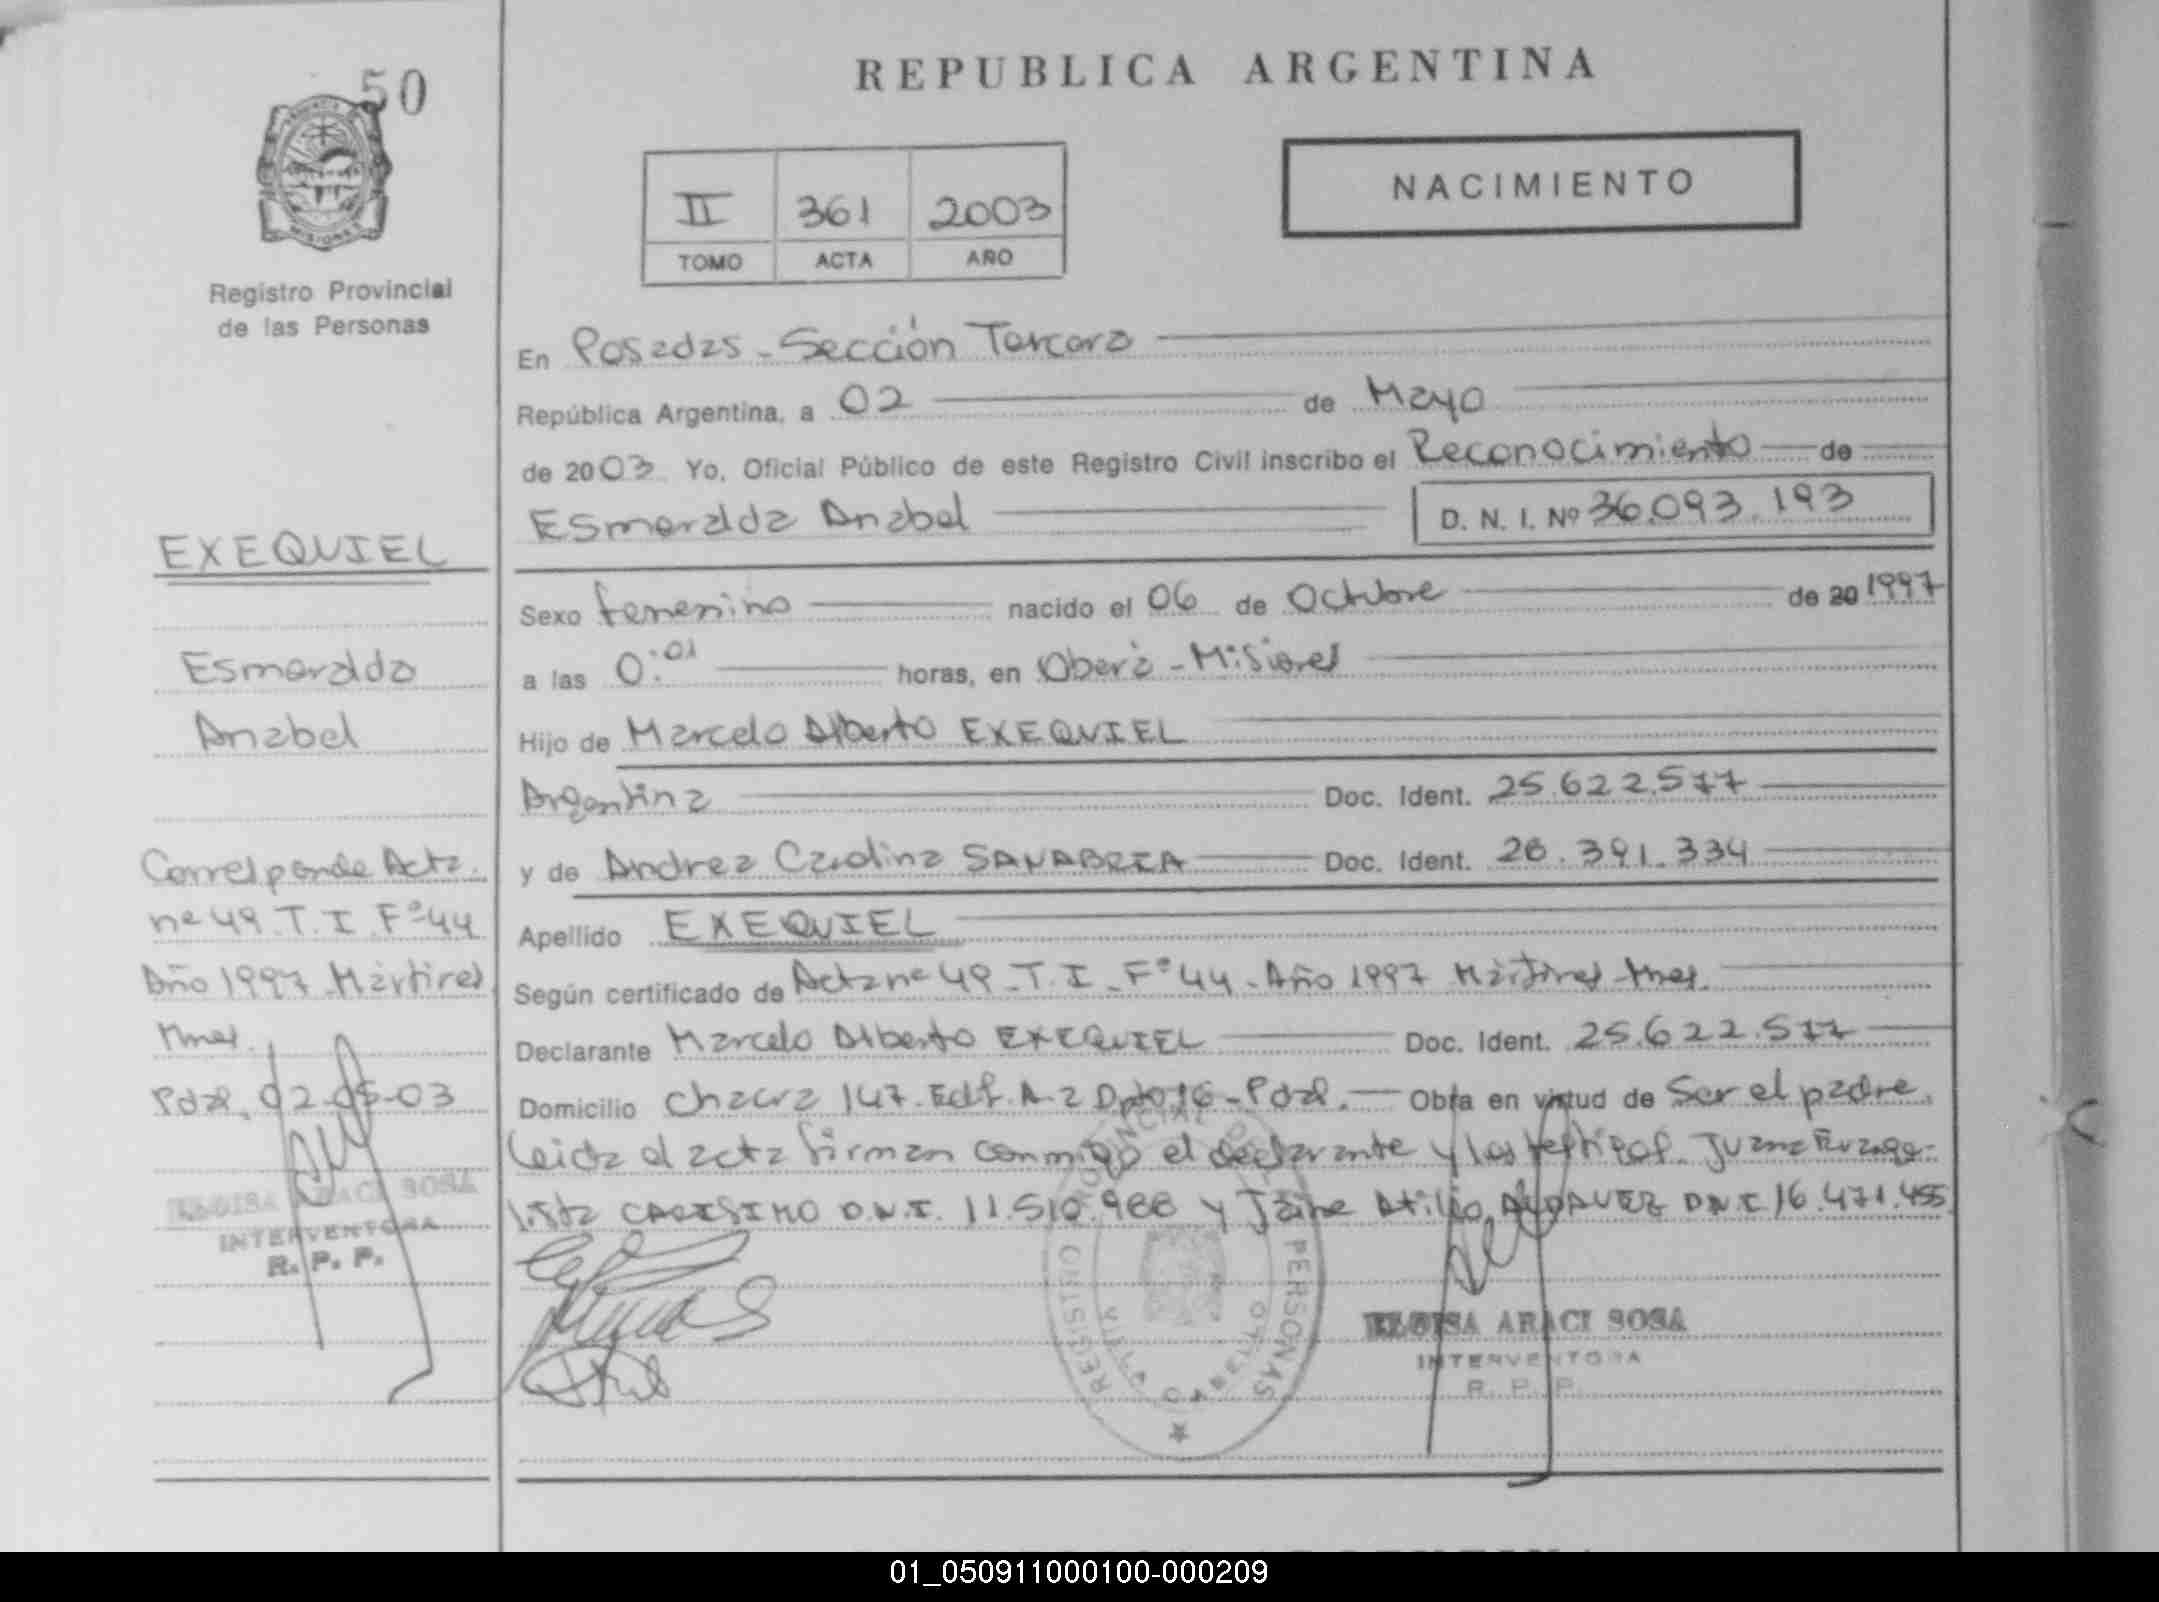 50
REPUBLICA ARGENTINA
NACIMIENTO
II 361 2003
TOMO ACTA AÑO
MISIONES
Registro Provincial
de las Personas
En Posadas - Sección Tercera
República Argentina, a 02 de Mayo
de 2003 Yo, Oficial Público de este Registro Civil inscribo el Reconocimiento de
Esmeralda Anabel D. N. I. Nº 36.093.193
Sexo femenino nacido el 06 de Octubre de 20 1997
a las 0:01 horas, en Oberá - Misiones
Hijo de Marcelo Alberto EXEQUIEL
Argentina Doc. Ident. 25.622.577
y de Andrea Carolina SANABRIA Doc. Ident. 26.391.334
Apellido EXEQUIEL
Según certificado de Acta nº 49 - T. I - Fº 44 - Año 1997 Mártires Mnes.
Declarante Marcelo Alberto EXEQUIEL Doc. Ident. 25.622.577
Domicilio Chacra 147. Edf. A-2 Dpto 16 - Pdas. Obra en virtud de Ser el padre.
Leida el acta firman conmigo el declarante y los testigos. Juana
lista D.N.I. 11.510.988 y Jaime Atilio D.N.I. 16.471.455
EXEQUIEL
Esmeralda
Anabel
Corresponde Acta
nº 49. T. I. Fº 44
Año 1997 Mártires
Mnes.
Pdas. 02-05-03
ELOISA ARACI SOSA
INTERVENTORA
R. P. P.
REGISTRO PROVINCIAL DE LAS PERSONAS
ELOISA ARACI SOSA
INTERVENTORA
R. P. P.
01_050911000100-000209